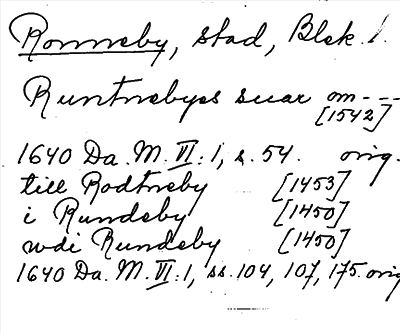 Ronneby, stad, Blek. l.
Runtnebyes suar om - - -
[1542]
1640 Da. M. VI: 1, s. 54. orig.
till Rodtneby [1453]
i Rundeby [1450]
udi Rundeby [1450]
1640 Da. M. VI: 1, ss. 104, 107, 175. orig